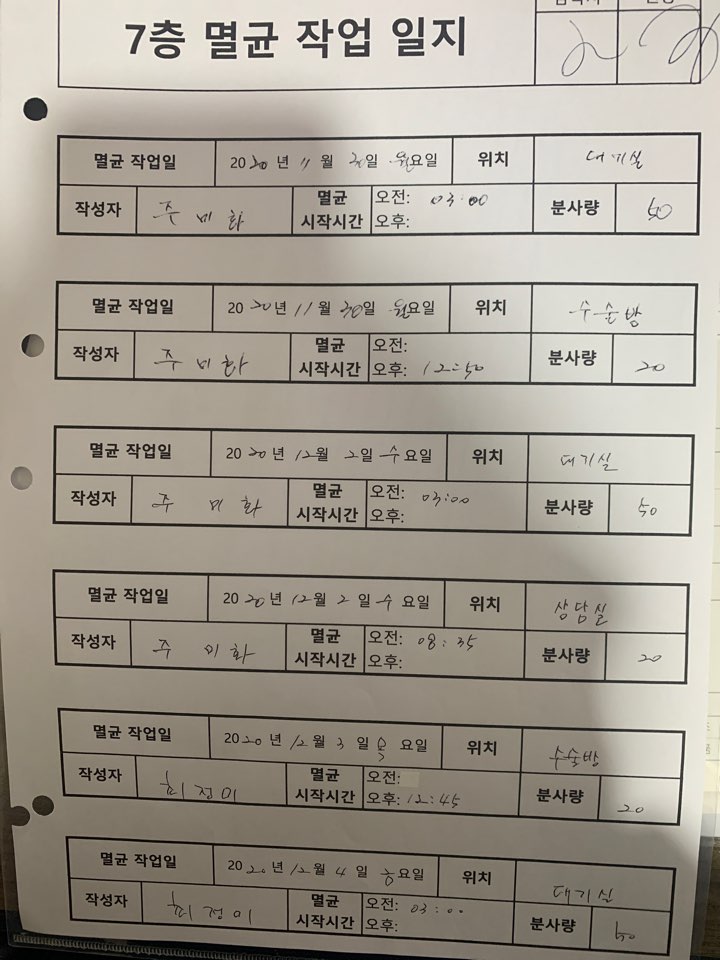 7층 멸균 작업 일지
멸균 작업일 2020년 11월 30일 월요일 위치 대기실
작성자 주미화 멸균 시작시간 오전: 03:00 오후: 분사량 50
멸균 작업일 2020년 11월 30일 월요일 위치 수술방
작성자 주미화 멸균 시작시간 오전: 오후: 12:50 분사량 20
멸균 작업일 2020년 12월 2일 수요일 위치 대기실
작성자 주미화 멸균 시작시간 오전: 03:00 오후: 분사량 50
멸균 작업일 2020년 12월 2일 수요일 위치 상담실
작성자 주미화 멸균 시작시간 오전: 08:35 오후: 분사량 20
멸균 작업일 2020년 12월 3일 목요일 위치 수술방
작성자 멸균 시작시간 오전: 오후: 12:45 분사량 20
멸균 작업일 2020년 12월 4일 금요일 위치 대기실
작성자 멸균 시작시간 오전: 03:00 오후: 분사량 50